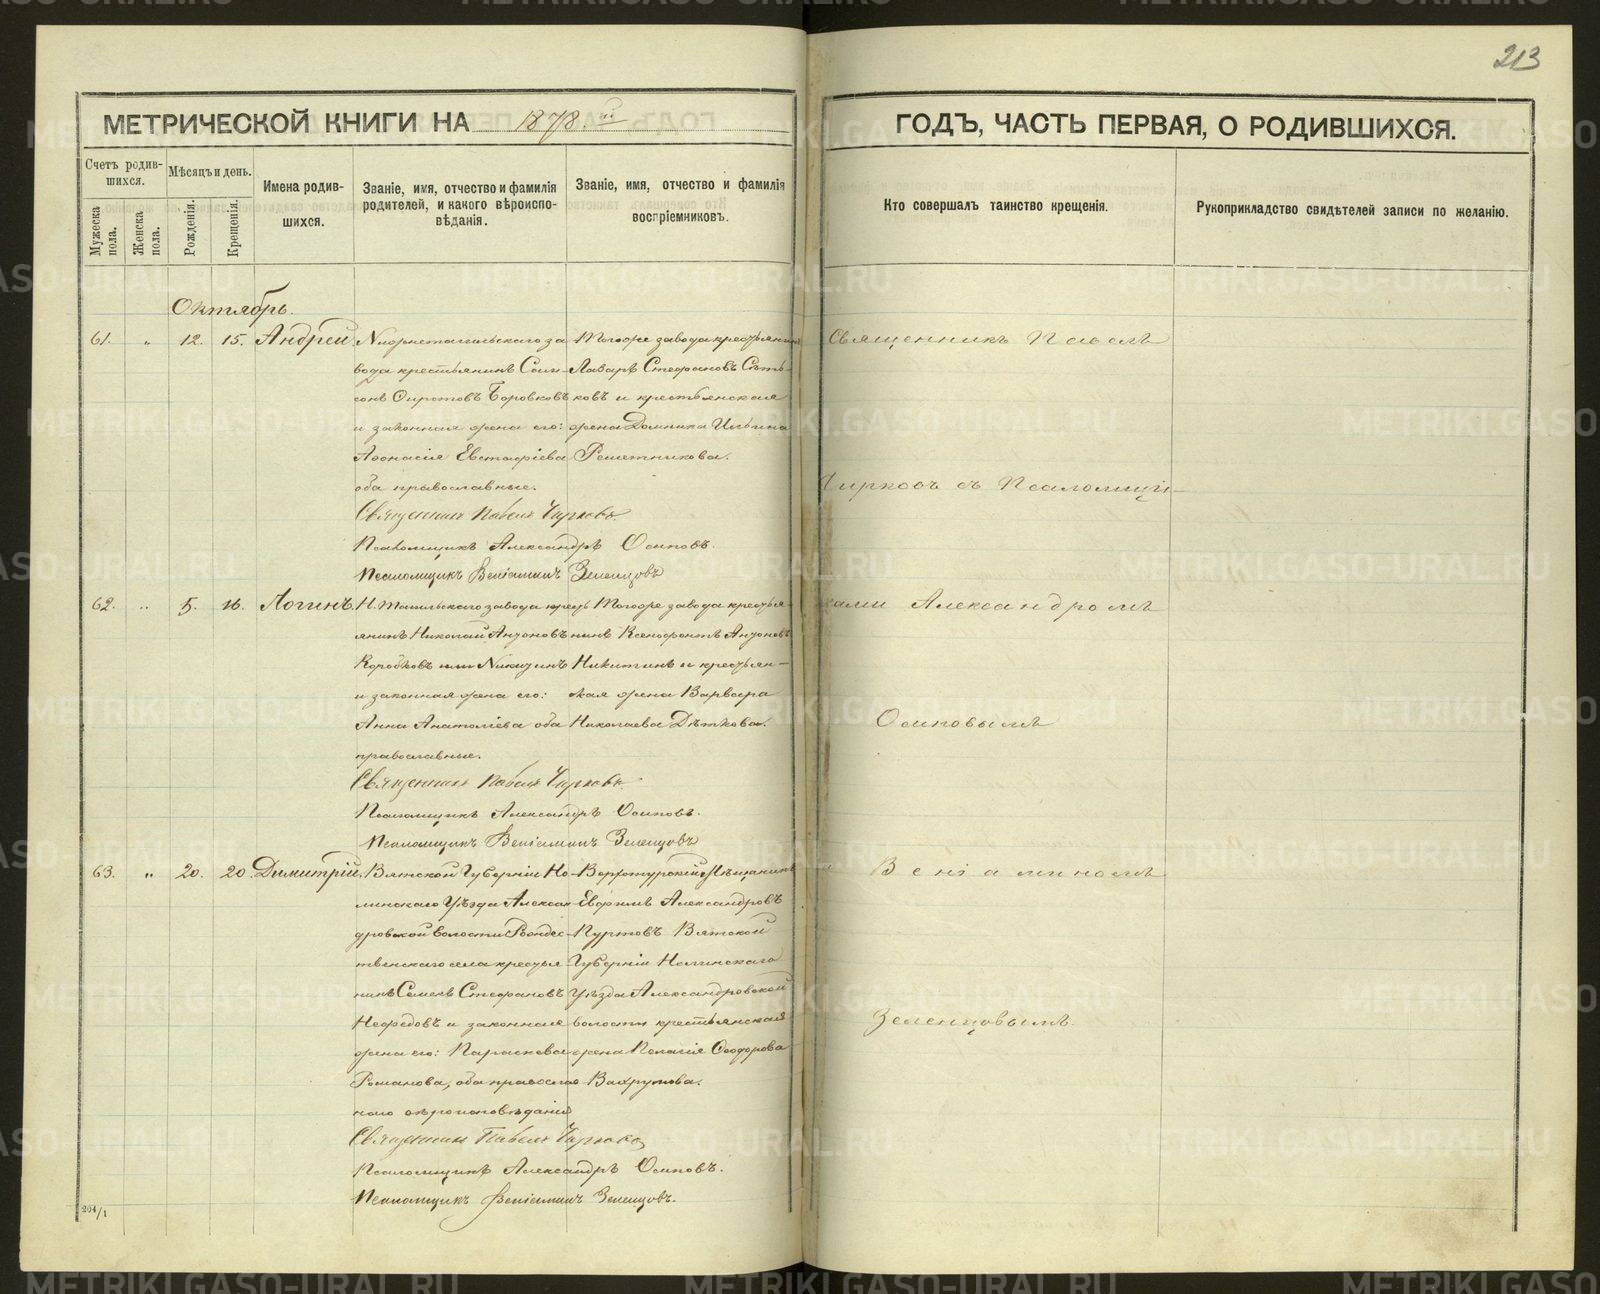 213
МЕТРИЧЕСКОЙ КНИГИ НА 1878.ой ГОДЪ, ЧАСТЬ ПЕРВАЯ, О РОДИВШИХСЯ.
Счетъ родившихся.
Мужеска пола.
Женска пола.
Мѣсяцъ и день.
Рожденія.
Крещенія.
Имена родившихся.
Званіе, имя, отчество и фамилія родителей, и какого вѣроисповѣданія.
Званіе, имя, отчество и фамилія воспріемниковъ.
Кто совершалъ таинство крещенія.
Рукоприкладство свидѣтелей записи по желанію.
Октябрь.
61. " 12. 15. Андрей
Нижнетагильскаго за
вода крестьянинъ
Боровковъ
и законная жена его:
Афанасія Евстафіева
оба православные.
Тогоже завода крестьянинъ
Лазарь Стефановъ
ковъ и крестьянская
жена Домника Ильина
Решетникова.
Священникъ Павелъ Чирковъ
Псаломщикъ Александръ Осиповъ.
Псаломщикъ Веніаминъ Зеленцовъ
62. " 5. 16. Логинъ
Н. Тагильскаго завода кресть
янинъ Николай Антоновъ
Коробковъ или Никитинъ
и законная жена его:
Анна Анатоліева оба
православные.
Тогоже завода крестья-
нинъ Ксенофонтъ Антоновъ
Никитинъ и крестьян-
кая жена Варвара
Николаева Дѣткова.
Священникъ Павелъ Чирковъ
Псаломщикъ Александръ Осиповъ.
Псаломщикъ Веніаминъ Зеленцовъ
63. " 20. 20. Димитрій
Вятской Губерніи Но-
линскаго Уѣзда Алексан-
дровской волости Рождес-
твенскаго села крестья
нинъ Семенъ Стефановъ
Нефедовъ и законная
жена его: Параскева
Романова, оба православ
наго вѣроисповѣданія
Верхотурскій Мѣщанинъ
Евфимъ Александровъ
Пуртовъ Вятской
Губерніи Нолинскаго
Уѣзда Александровской
волости крестьянская
жена Пелагія Ѳеодорова
Вахрушева.
Священникъ Павелъ Чирковъ
Псаломщикъ Александръ Осиповъ.
Псаломщикъ Веніаминъ Зеленцовъ.
Священникъ Павелъ
Чирковъ съ Псаломщи-
ками Александромъ
Осиповымъ
и Веніаминомъ
Зеленцовымъ.
204/1
METRIKI.GASO-URAL.RU